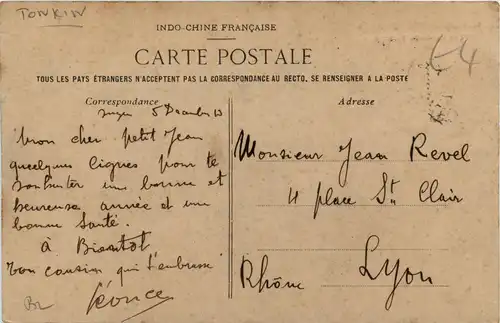 TONKIN
INDO-CHINE FRANÇAISE
CARTE POSTALE
TOUS LES PAYS ÉTRANGERS N'ACCEPTENT PAS LA CORRESPONDANCE AU RECTO. SE RENSEIGNER A LA POSTE
Correspondance
5 Décembre 13
Mon cher petit Jean
quelques lignes pour te
souhaiter une bonne et
heureuse année et une
bonne santé.
à Bientot
ton cousin qui t'embrasse
Léonce
Adresse
Monsieur Jean Revel
4 place St Clair
Lyon
Rhône